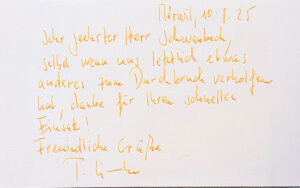 10.8.25
Sehr geehrter Herr Schwenbeck,
selbst wenn uns letztlich etwas
anderes zum Durchbruch verholfen
hat, danke für Ihren schnellen
Einsatz!
Freundliche Grüße
T.